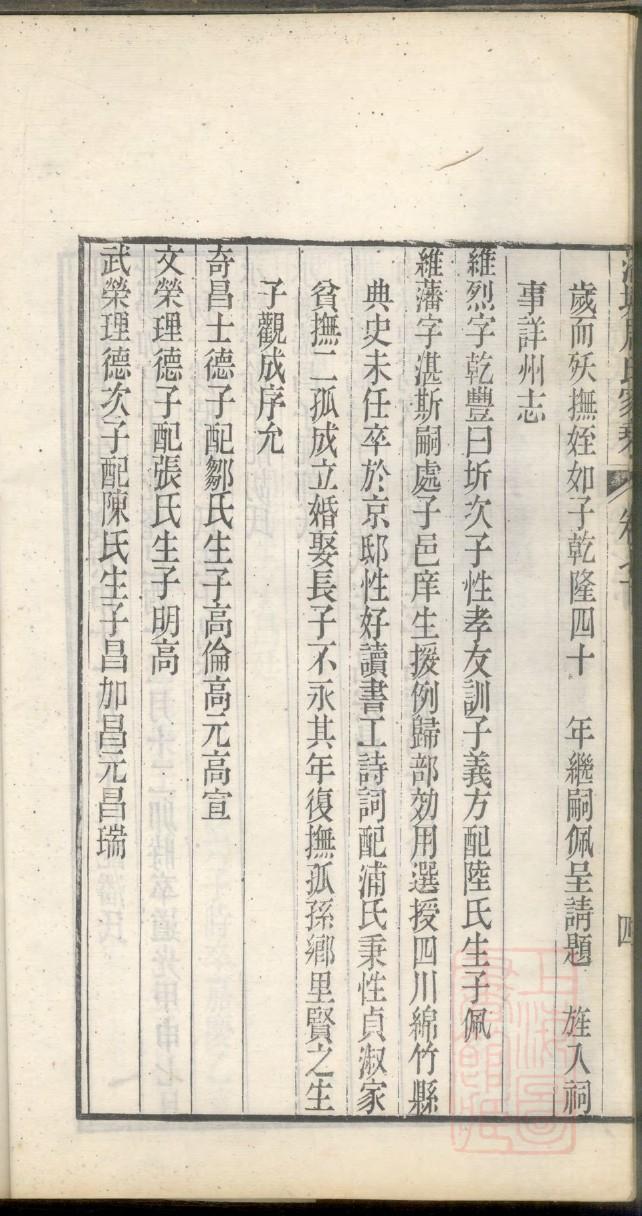 歲而殀撫姪如子乾隆四十　年繼嗣佩呈請題　旌入祠
事詳州志
維烈字乾豐曰圻次子性孝友訓子義方配陸氏生子佩
維藩字湛斯嗣處子邑庠生援例歸部効用選授四川綿竹縣
典史未任卒於京邸性好讀書工詩詞配浦氏秉性貞淑家
貧撫二孤成立婚娶長子不永其年復撫孤孫鄉里賢之生
子觀成序允
奇昌士德子配鄒氏生子高倫高元高宣
文榮理德子配張氏生子明高
武榮理德次子配陳氏生子昌加昌元昌瑞
四